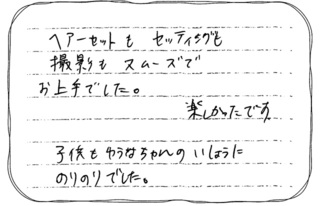 ヘアーセットも セッティングも
撮影も スムーズで
お上手でした。
楽しかったです
子供も ゆうなちゃんの いしょうに
のりのりでした。